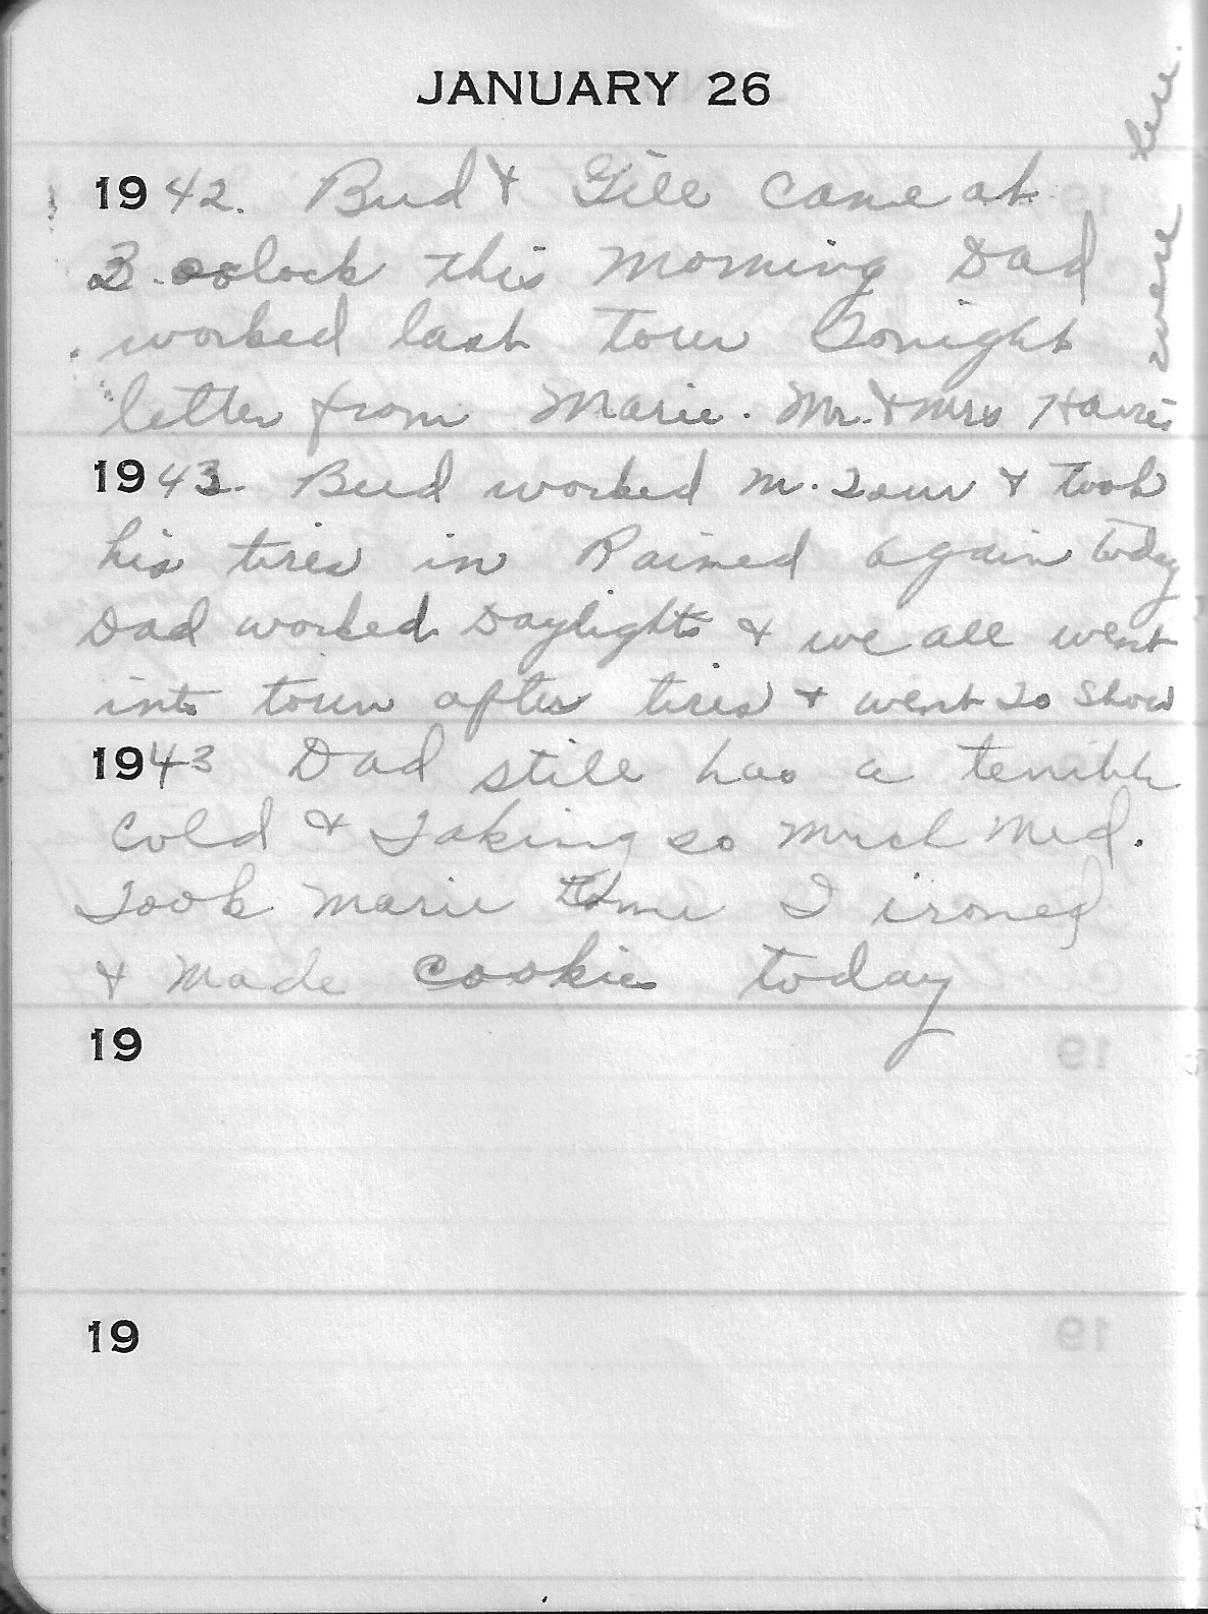 JANUARY 26
1942. Bud & Gill came at
3. oclock this morning Dad
worked last tour Tonight
letter from Marie. Mr. & Mrs Harris
were here.
1943. Bud worked M. Tour & took
his tires in Rained again today
Dad worked Daylights & we all went
into town after tires & went to show
1943 Dad still has a terrible
cold & Taking so much Med.
Took Marie home I ironed
& made cookies today
19
19